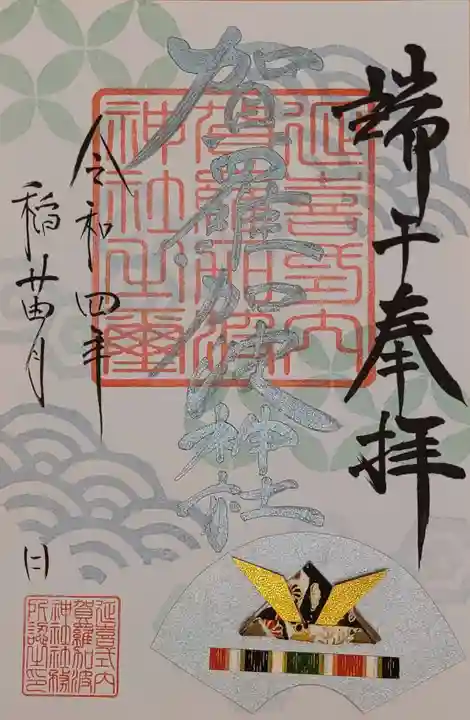 端午奉拝
賀羅加波神社
延喜式内
賀羅加波
神社之璽
令和四年
稲苗月
日
延喜式内
賀羅加波
神社社務
所認之印